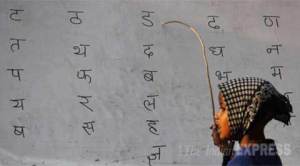 ट ठ ड ढ ण
त थ द ध न
प फ ब भ म
य र ल
ष स ह
ज्ञ
EXPRESS